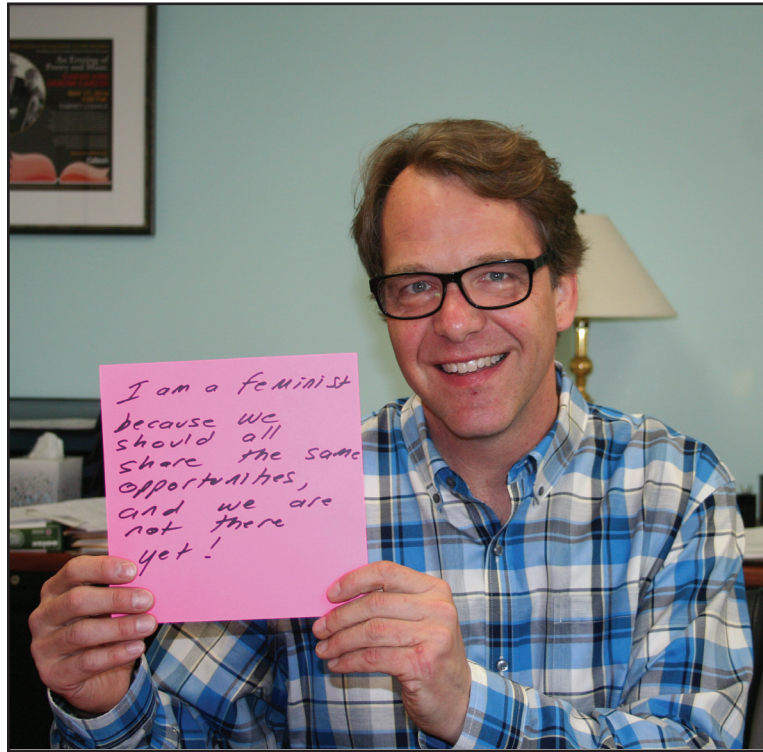 An Evening of
Poetry and Music
I am a feminist
because we
should all
share the same
opportunities,
and we are
not there
yet!